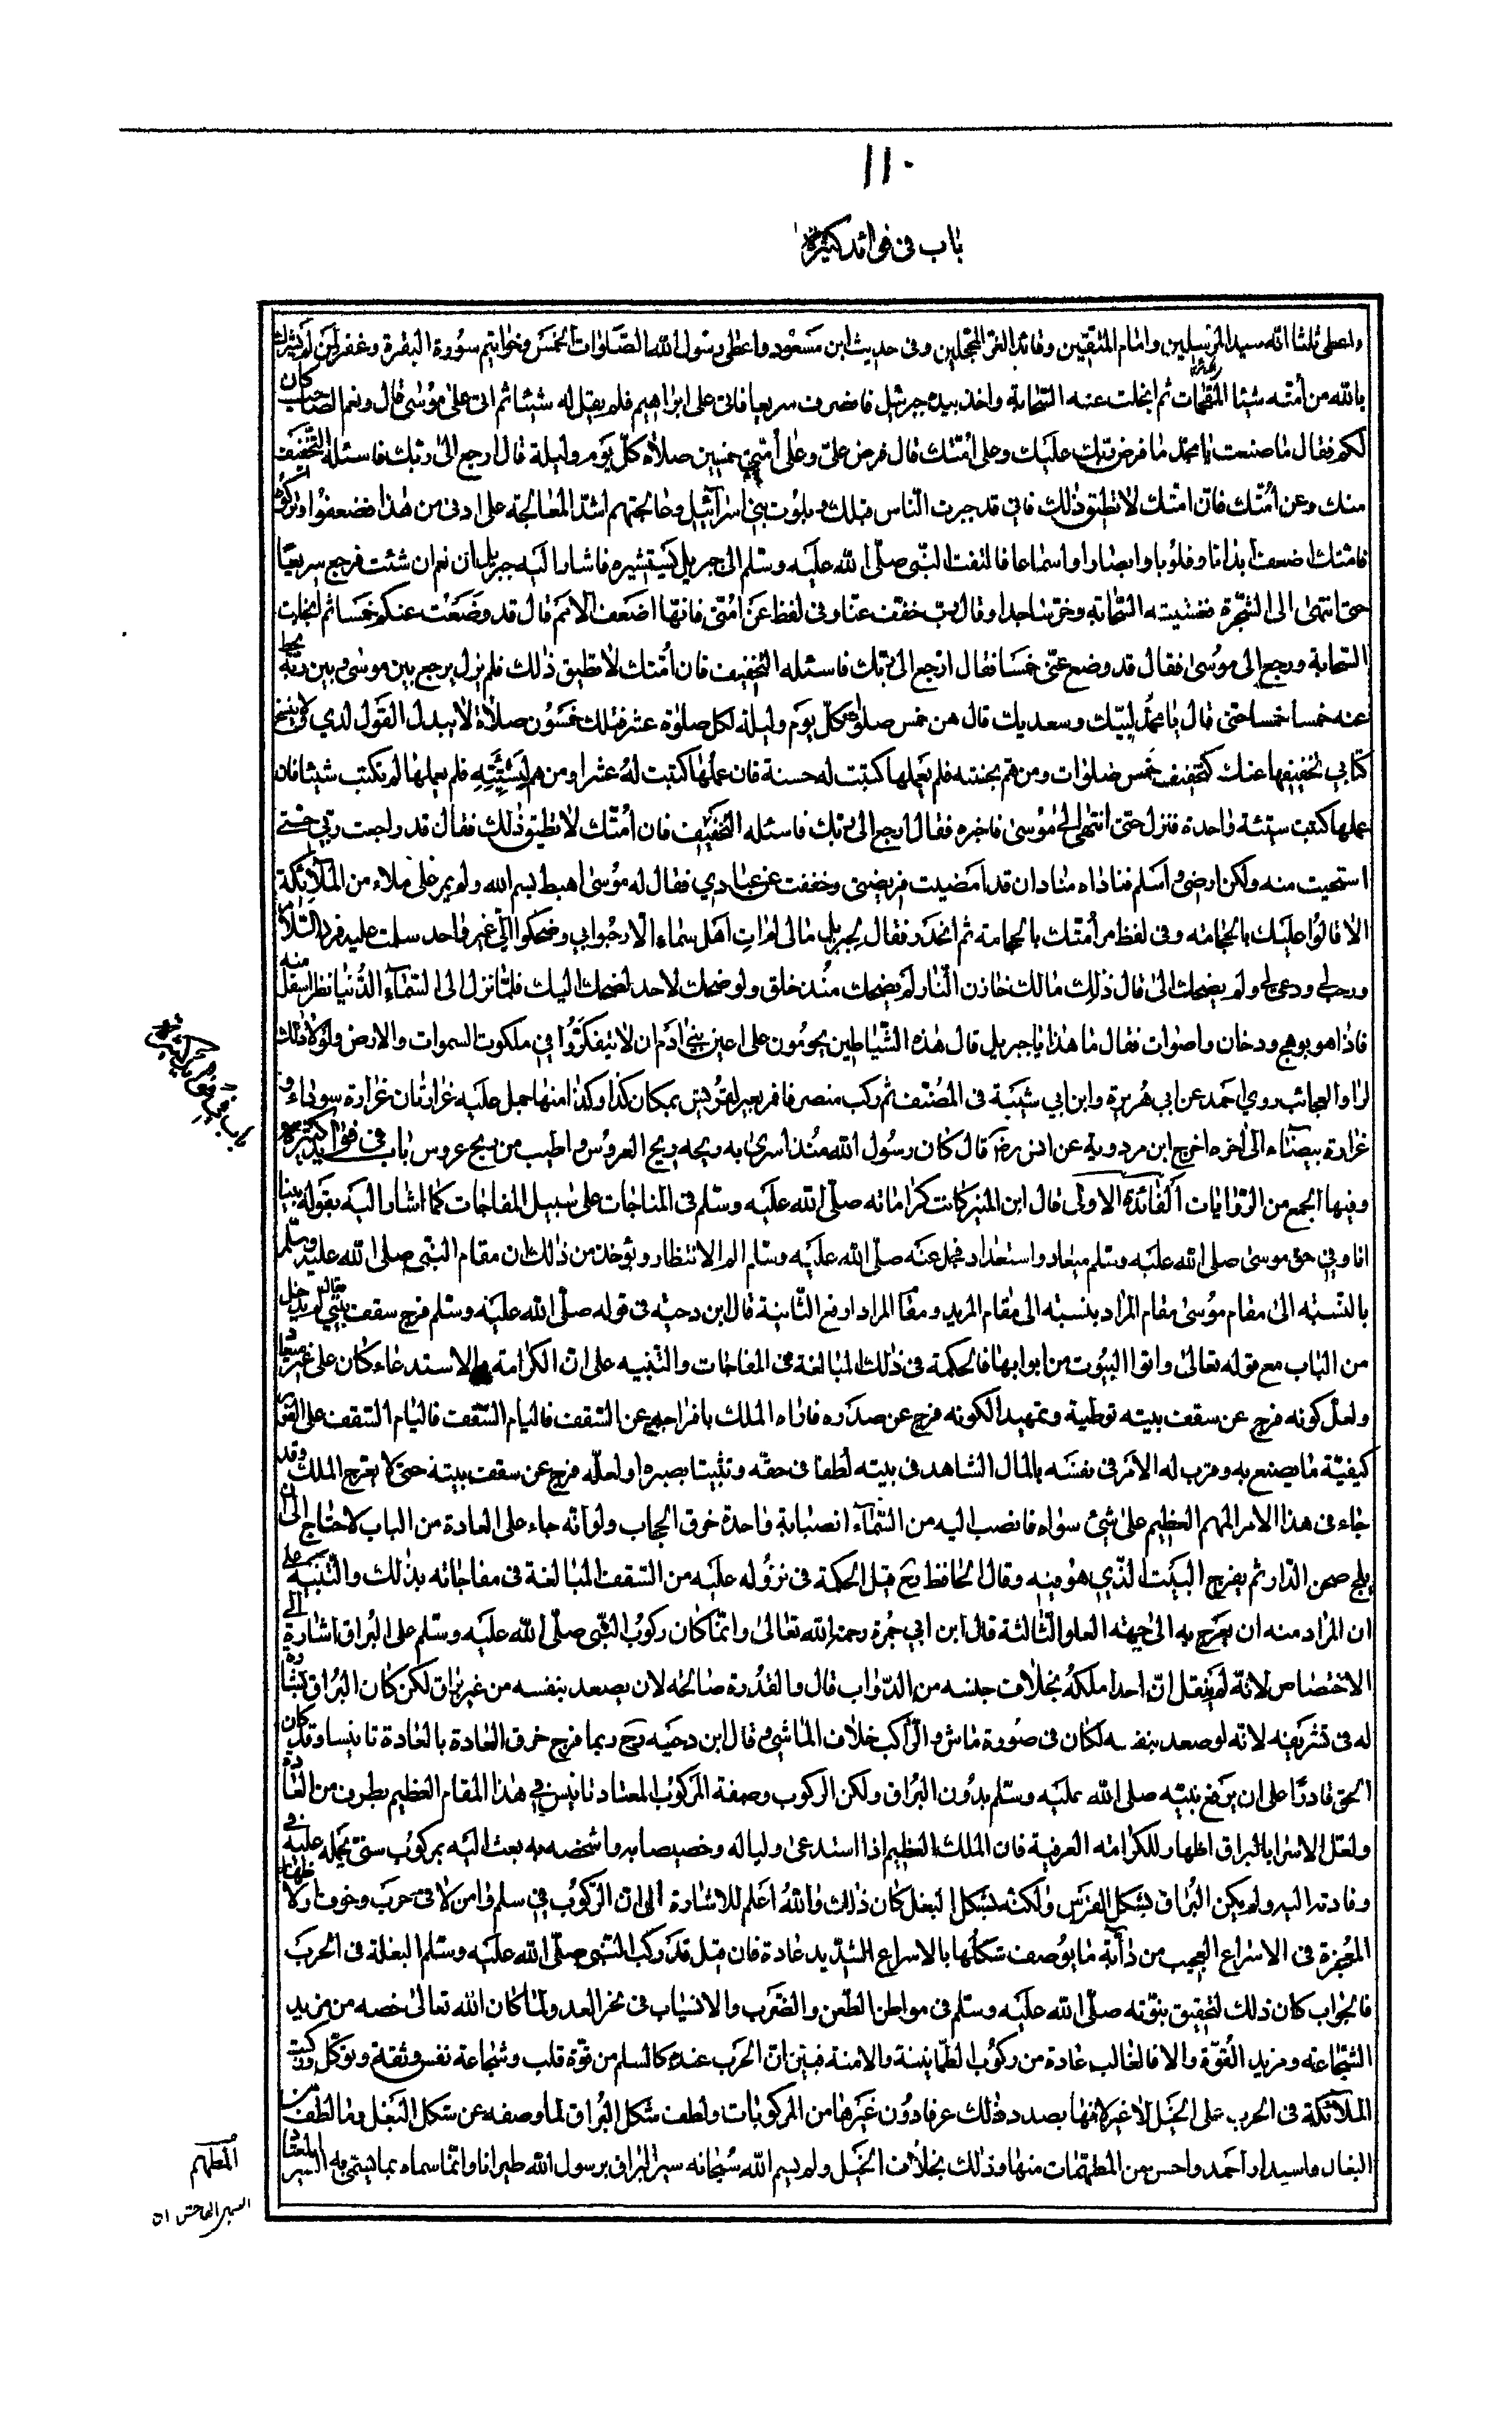 ١١٠
باب فى فوائد كثيرة
واعطى ثلثا انه سيد المرسلين وامام المتقين وقائد الغر المحجلين وفى حديث ابن مسعود واعطى رسول الله الصلوات الخمس وخواتيم سورة البقرة وغفر لمن لم يشرك
بالله من أمته شيئا المقحمات ثم انجلت عنه السحابة واخذ بيده جبرئيل فانصرف سريعا فاتى على ابراهيم فلم يقل له شيئا ثم اتى على موسى قال ونعم الصاحب كان
لكم فقال ما صنعت يا محمد ما فرض ربك عليك وعلى أمتك قال فرض على وعلى أمتى خمسين صلاة كل يوم وليلة قال ارجع الى ربك فاسئله التخفيف
منك وعن أمتك فان امتك لا تطيق ذلك فانى قد جربت الناس قبلك وبلوت بنى اسرآئيل وعالجتهم اشد المعالجة على ادنى من هذا فضعفوا وتركوه
فامتك اضعف ابدانا وقلوبا وابصارا واسماعا فالتفت النبى صلى الله عليه وسلم الى جبريل يستشيره فاشار اليه جبريل ان نعم ان شئت فرجع سريعا
حتى انتهى الى الشجرة فغشيته السحابة وخر ساجدا وقال رب خفف عنا وفى لفظ عن امتى فانها اضعف الامم قال قد وضعت عنكم خمسا ثم انجلت
السحابة ورجع الى موسى فقال قد وضع عنى خمسا فقال ارجع الى ربك فاسئله التخفيف فان أمتك لا تطيق ذلك فلم يزل يرجع بين موسى وبين ربه يحط
عنه خمسا خمسا حتى قال يا محمد لبيك وسعديك قال هن خمس صلوات كل يوم وليلة لكل صلوة عشر فتلك خمسون صلاة لا يبدل القول لدي ولا ينسخ
كتابي تخفيفها عنك كتخفيف خمس صلوات ومن هم بحسنة فلم يعملها كتبت له حسنة فان عملها كتبت له عشرا ومن هم بسيئة فلم يعملها لم تكتب شيئا فان
عملها كتبت سيئة واحدة فنزل حتى انتهى الى موسى فاخبره فقال ارجع الى ربك فاسئله التخفيف فان أمتك لا تطيق ذلك فقال قد راجعت ربي حتى
استحييت منه ولكن ارضى واسلم فناداه مناد ان قد امضيت فريضتى وخففت عن عبادي فقال له موسى اهبط بسم الله ولم يمر على ملاء من الملآئكة
الا قالوا عليك بالحجامة وفى لفظ مر أمتك بالحجامة ثم انحدر فقال لجبريل مالى لم ات اهل سماء الا رحبوا بي وضحكوا الي غير واحد سلمت عليه فرد السلام
ورحب بي ودعى لي ولم يضحك الى قال ذلك مالك خازن النار لم يضحك منذ خلق ولو ضحك لاحد لضحك اليك فلما نزل الى السماء الدنيا نظر اسفل منه
فاذا هو بوهج ودخان واصوات فقال ما هذا يا جبريل قال هذه الشياطين يحومون على اعين بني ادم ان لا يتفكروا في ملكوت السموات والارض ولولا ذلك
لراوا العجائب روي احمد عن ابى هريرة وابن ابي شيبة فى المصنف ثم ركب منصرفا فمر بعير لقريش بمكان كذا وكذا منها جمل عليه غرارتان غرارة سوداء و
غرارة بيضاء الى اخره اخرج ابن مردويه عن انس رض قال كان رسول الله منذ اسرى به ريحه ريح العروس واطيب من ريح عروس باب فى فوائد كثيرة
وفيها الجمع من الروايات الفائدة الاولى قال ابن المنير كانت كراماته صلى الله عليه وسلم فى المناجات على سبيل المفاجات كما اشار اليه بقوله بينا
انا وفي حق موسى صلى الله عليه وسلم ميعاد واستعداد فحمل عنه صلى الله عليه وسلم الم الانتظار ويؤخذ من ذلك ان مقام النبى صلى الله عليه وسلم
بالنسبة الى مقام موسى مقام المراد بنسبته الى مقام المريد ومقام المراد ارفع الثانية قال ابن دحية فى قوله صلى الله عليه وسلم فرج سقف بيتي يقال لم لم يدخل
من الباب مع قوله تعالى واتوا البيوت من ابوابها فالحكمة فى ذلك المبالغة فى المفاجات والتنبيه على ان الكرامة والاستدعاء كان على غير ميعاد
ولعل كونه فرج عن سقف بيته توطية وتمهيدا لكونه فرج عن صدره فاراه الملك بافراجه عن السقف فالتيام السقف فالتيام السقف على الفور
كيفية ما يصنع به وقرب له الامر فى نفسه بالمثال الشاهد فى بيته لطفا فى حقه وتثبيتا بصبره او لعله فرج عن سقف بيته حتى لا يعرج الملك وقد
جاء فى هذا الامر المهم العظيم على شئ سواه فانصب اليه من السماء انصبابة واحدة خرق الحجاب ولو انه جاء على العادة من الباب لاحتاج الى ان
يلج صحن الدار ثم يفرج البيت الذي هو فيه وقال الحافظ رح قيل الحكمة فى نزوله عليه من السقف المبالغة فى مفاجاته بذلك والتنبيه على
ان المراد منه ان يعرج به الى جهة العلو الثالثة قال ابن ابي جمرة رحمه الله تعالى وانما كان ركوب النبى صلى الله عليه وسلم على البراق اشارة الى
الاختصاص لانه لم ينقل ان احدا ملكه بخلاف جنسه من الدواب قال والقدرة صالحة لان يصعد بنفسه من غير براق لكن كان البراق بشارة
له فى تشريفه لانه لو صعد بنفسه لكان فى صورة ماش والراكب خلاف الماشى وقال ابن دحيه رح ربما فرج خرق العادة بالعادة تانيسا وقد كان
الحق قادرا على ان يرفع نبيه صلى الله عليه وسلم بدون البراق ولكن الركوب وصفة المركوب المعتاد تانيس في هذا المقام العظيم بطرف من العادة
ولعل الاسرا بالبراق اظهار للكرامة العرفية فان الملك العظيم اذا استدعى وليا له وخصيصا به واشخصه به بعث اليه بمركوب سنى يحمله عليه فى
وفادته اليه ولم يكن البراق بشكل الفرس ولكنه بشكل البغل كان ذلك والله اعلم للاشارة الى ان الركوب في سلم وامن لا فى حرب وخوف او لاظهار
المعجزة فى الاسراع العجيب من دآبة ما يوصف شكلها بالاسراع الشديد عادة فان قيل قد ركب النبى صلى الله عليه وسلم البغلة فى الحرب
فالجواب كان ذلك لتحقيق نبوته صلى الله عليه وسلم فى مواطن الطعن والضرب والانسياب فى نحر العدو لما كان الله تعالى خصه من مزيد
الشجاعة ومزيد القوة والا فالغالب عادة من ركوب الطمانينة والامنة فبين ان الحرب عنده كالسلم من قوة قلب وشجاعة نفس وثقة وتوكل وركبت
الملآئكة فى الحرب على الخيل لا غير لانها بصدد ذلك عرفا دون غيرها من المركوبات ولطف شكل البراق لما وصفه عن شكل البغل وما لطف من
البغال واستدار احمد واحسن من المطهمات منها وذلك بخلاف الخيل ولم يسم الله سبحانه سير البراق برسول الله طيرانا وانما سماه بما يسمى به السير المعتاد
المطهم